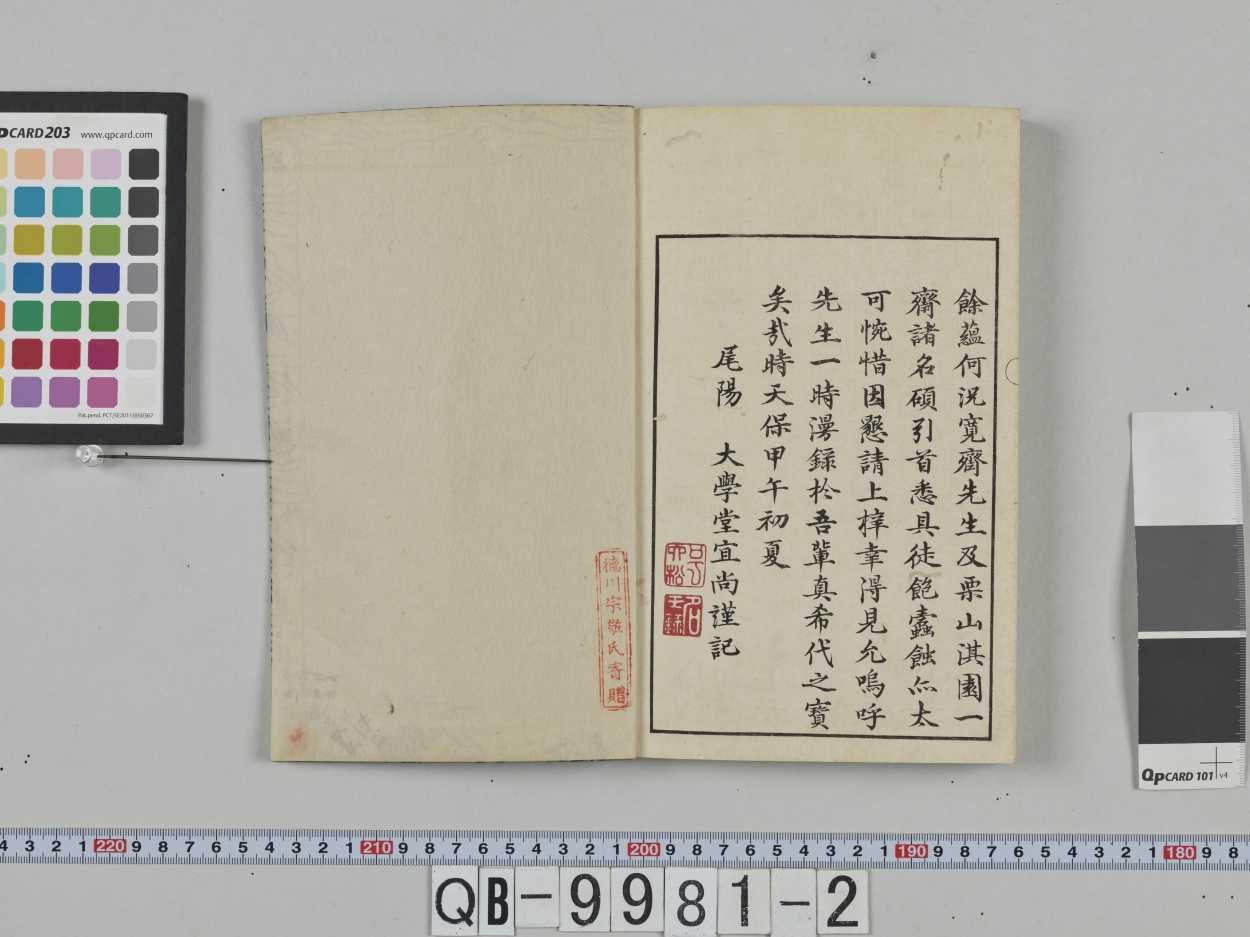 餘蘊何況寬齋先生及栗山淇園一
齋諸名碩引首悉具徒飽蠧蝕亦太
可惋惜因懇請上梓幸得見允嗚呼
先生一時漫錄於吾輩真希代之寶
矣哉時天保甲午初夏
尾陽 大學堂宜尚謹記
德川宗敬氏寄贈
QPCARD 203 www.qpcard.com
Pat.pend. PCT/SE2011/050367
QPCARD 101 v4
4 3 2 1 220 9 8 7 6 5 4 3 2 1 210 9 8 7 6 5 4 3 2 1 200 9 8 7 6 5 4 3 2 1 190 9 8 7 6 5 4 3 2 1 180 9 8
QB-9981-2